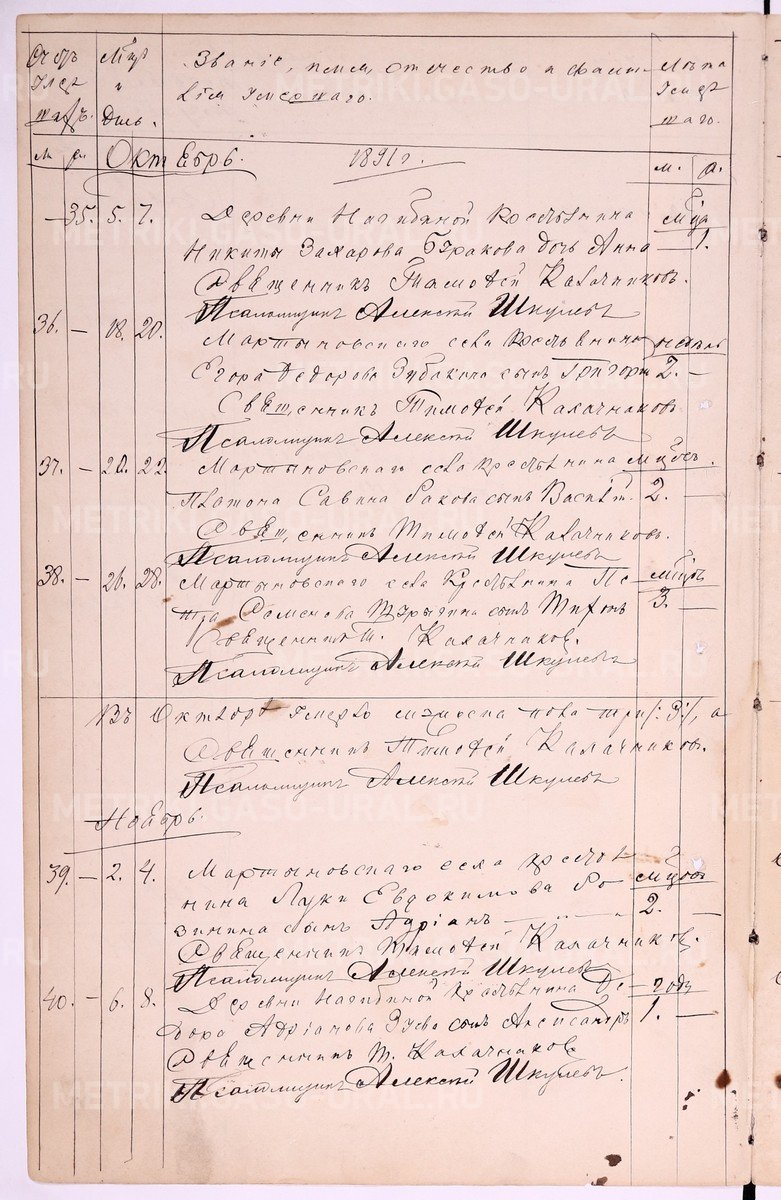 Счетъ Мѣц. Званіе, имя, отчество и фами- Лѣта
умер- и лія умершаго. умер-
шихъ. день. шаго.
м. ж. Октябрь. 1891 г. м. ж.
— 35. 5. 7. Деревни Нагибиной крестьянина
Никиты Захарова дочь Анна — 1.
Священникъ Тимофей Калачниковъ.
Псаломщикъ Алексѣй Шкулевъ
36. — 18. 20. Мартыновскаго села крестьянина
Егора Федорова сынъ Григорій 2. —
Священникъ Тимофей Калачниковъ
Псаломщикъ Алексѣй Шкулевъ
37. — 20. 22. Мартыновскаго села крестьянина
Платона Савина Ракова сынъ Василій. 2. —
Священникъ Тимофей Калачниковъ.
Псаломщикъ Алексѣй Шкулевъ
38. — 26. 28. Мартыновскаго села крестьянина Пе
тра сынъ 3. —
Священникъ Т. Калачников.
Псаломщикъ Алексѣй Шкулевъ
Въ Октябрѣ умерло пола три /:3:/, а
Священникъ Тимофей Калачников.
Псаломщикъ Алексѣй Шкулевъ
Ноябрь.
39. — 2. 4. Мартыновскаго села крестья
нина Луки Евдокимова Ро
зинина сынъ Адріанъ — 2. —
Священникъ Тимофей Калачников.
Псаломщикъ Алексѣй Шкулевъ
40. — 6. 8. Деревни Нагибиной крестьянина Ѳе года
дора Адріанова сынъ Александръ 1. —
Священникъ Т. Калачников
Псаломщикъ Алексѣй Шкулевъ.
METRIKI.GASO-URAL.RU